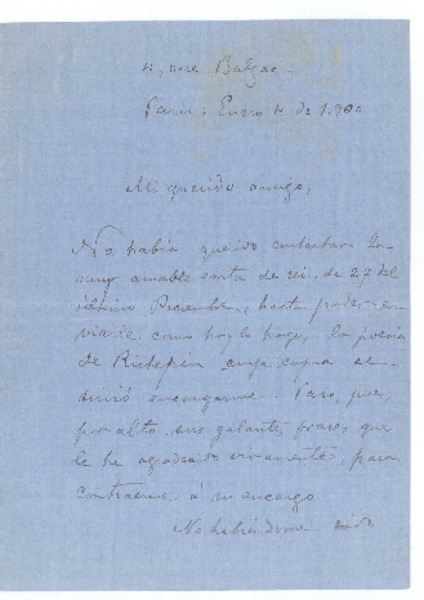 4, rue Balzac
Paris: Enero 4 de 1.900
Mi querido amigo,
No había querido contestar la
muy amable carta de de 27 del
último Diciembre, hasta poder en-
viarle como hoy lo hago, la poesía
de Richepin cuya copia se
sirvió encargarme. Paso, pues,
por alto sus galantes frases que
le he agradecido vivamente, para
contraerme á su encargo.
No habiéndome sido